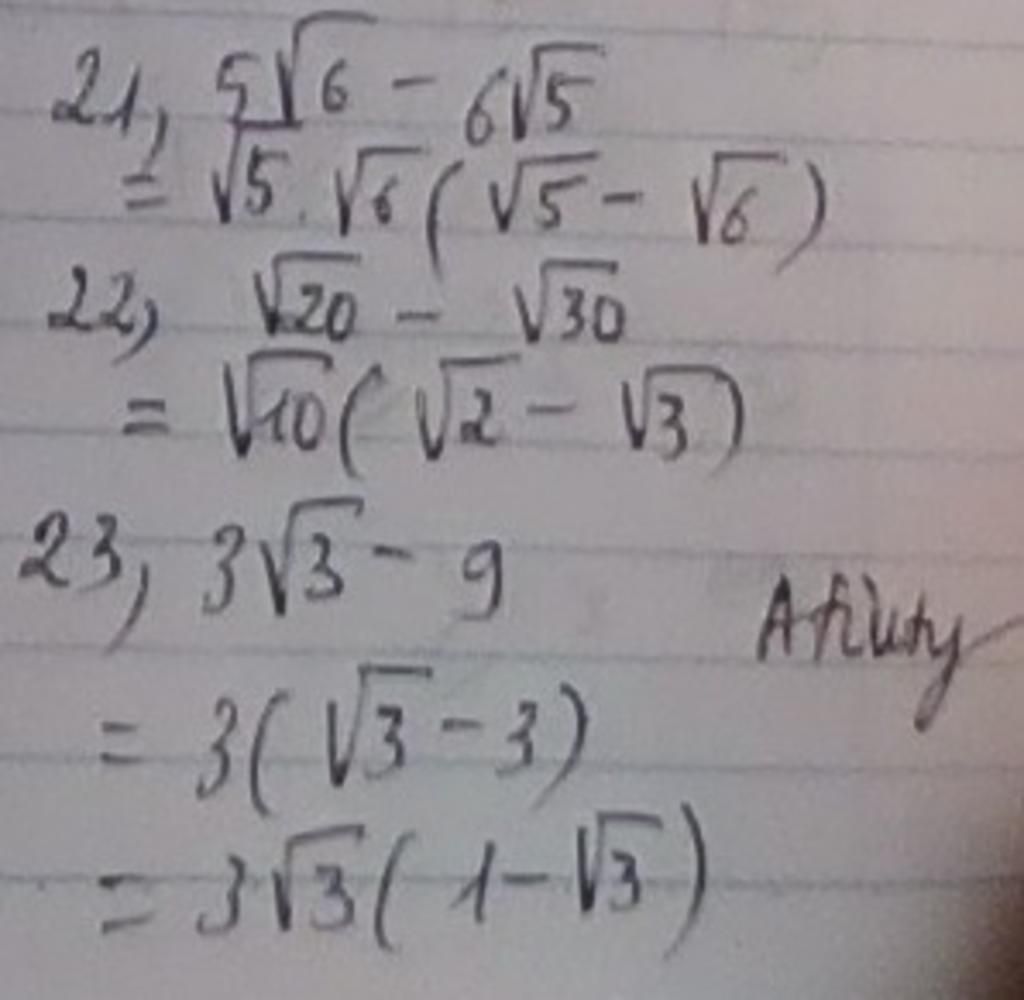 21, 5√6 - 6√5
= √5 . √6 ( √5 - √6 )
22, √20 - √30
= √10 ( √2 - √3 )
23, 3√3 - 9
= 3 ( √3 - 3 )
= 3√3 ( 1 - √3 )